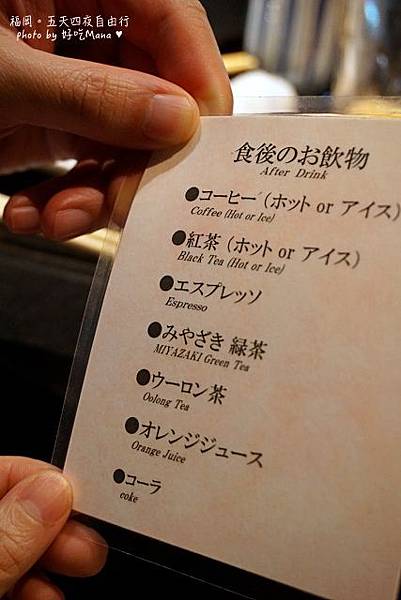 福岡。五天四夜自由行
photo by 好吃Mana ♥
食後のお飲物
After Drink
●コーヒー（ホット or アイス）
Coffee (Hot or Ice)
●紅茶（ホット or アイス）
Black Tea (Hot or Ice)
●エスプレッソ
Espresso
●みやざき 緑茶
MIYAZAKI Green Tea
●ウーロン茶
Oolong Tea
●オレンジジュース
Orange Juice
●コーラ
coke